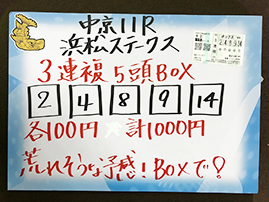 中京11R
浜松ステークス
3連複5頭BOX
2 4 8 9 14
各100円 計1000円
荒れそうな予感!BOXで!